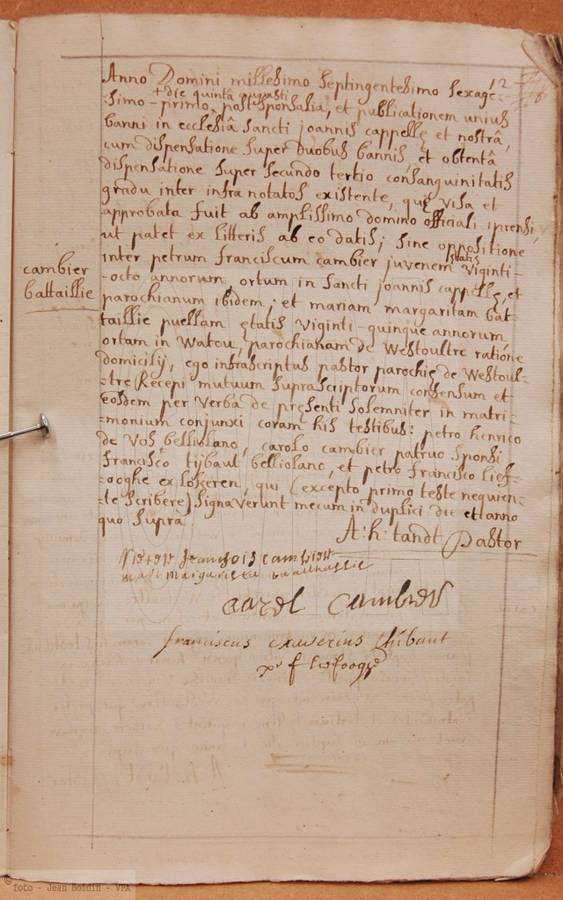 12
Anno Domini millesimo septingentesimo sexage-
+ die quinta augusti
-simo - primto, post sponsalia, et publicationem unius
banni in ecclesiâ sancti joannis cappellę et nostrâ,
cum dispensatione super duobus bannis, et obtentâ
dispensatione super secundo tertio consanguinitatis
gradu inter infra notatos existente, quę visa et
approbata fuit ab amplissimo domino officiali iprensi,
ut patet ex litteris ab eo datis; sine oppositione
inter petrum franciscum cambier juvenem ętatis viginti-
-octo annorum, ortum in sancti joannis cappellę, et
parochianum ibidem; et mariam margaritam bat-
taillie puellam ętatis viginti-quinque annorum
ortam in Watou, parochianam de Westoultre ratione
domicilij, ego infrascriptus pastor parochię de Westoul-
-tre Recepi mutuum suprascriptorum consensum et
eosdem per verba de pręsenti solemniter in matri-
-monium conjunxi coram his testibus: petro henrico
de Vos belliolano, carolo cambier patruo sponsi
francisco tijbaut belliolano, et petro francisco lief-
-ooghe ex lokeren, qui (excepto primo teste nequien-
-te scribere) signaverunt mecum in duplici die et anno
quo supra
cambier
battaillie
A: h: tandt Pastor
Pieter fransois cambier
mari margarita battaillie
carel cambier
franciscus xaverius thibaut
pr f liefooghe
©foto - Jean Boidin - VPA